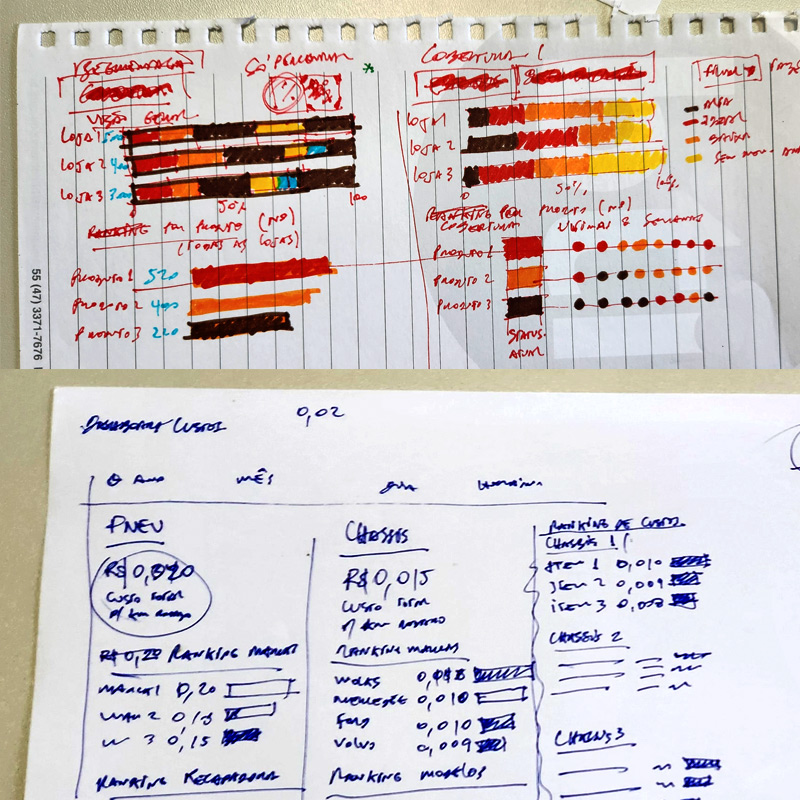 SEGMENTAÇÃO
SÓ PERCENTUAL
*
VISÃO GERAL
LOJA 1 500
LOJA 2 400
LOJA 3 300
0
50%
100
RANKING POR PRODUTO (Nº)
(TODAS AS LOJAS)
PRODUTO 1 520
PRODUTO 2 400
PRODUTO 3 220
COBERTURA 1
LOJA 1
LOJA 2
LOJA 3
0
50%
100%
RANKING POR PRODUTO (Nº)
COBERTURA
ÚLTIMAS 8 SEMANAS
PRODUTO 1
PRODUTO 2
PRODUTO 3
STATUS
ATUAL
55 (47) 3371-7676
DASHBOARD CUSTOS
0,02
ANO
MÊS
PNEU
R$ 0,020
CUSTO TOTAL
P/ KM RODADO
R$ 0,20 RANKING MARCAS
MARCA 1 0,20
2 0,18
3 0,15
RANKING RECAPADORA
CHASSIS
R$ 0,015
CUSTO TOTAL
P/ KM RODADO
RANKING MARCAS
VOLKS
MERCEDES 0,010
FORD 0,010
VOLVO 0,009
RANKING MODELOS
RANKING DE CUSTOS
CHASSIS 1
ITEM 1 0,010
ITEM 2 0,009
ITEM 3 0,008
CHASSIS 2
CHASSIS 3